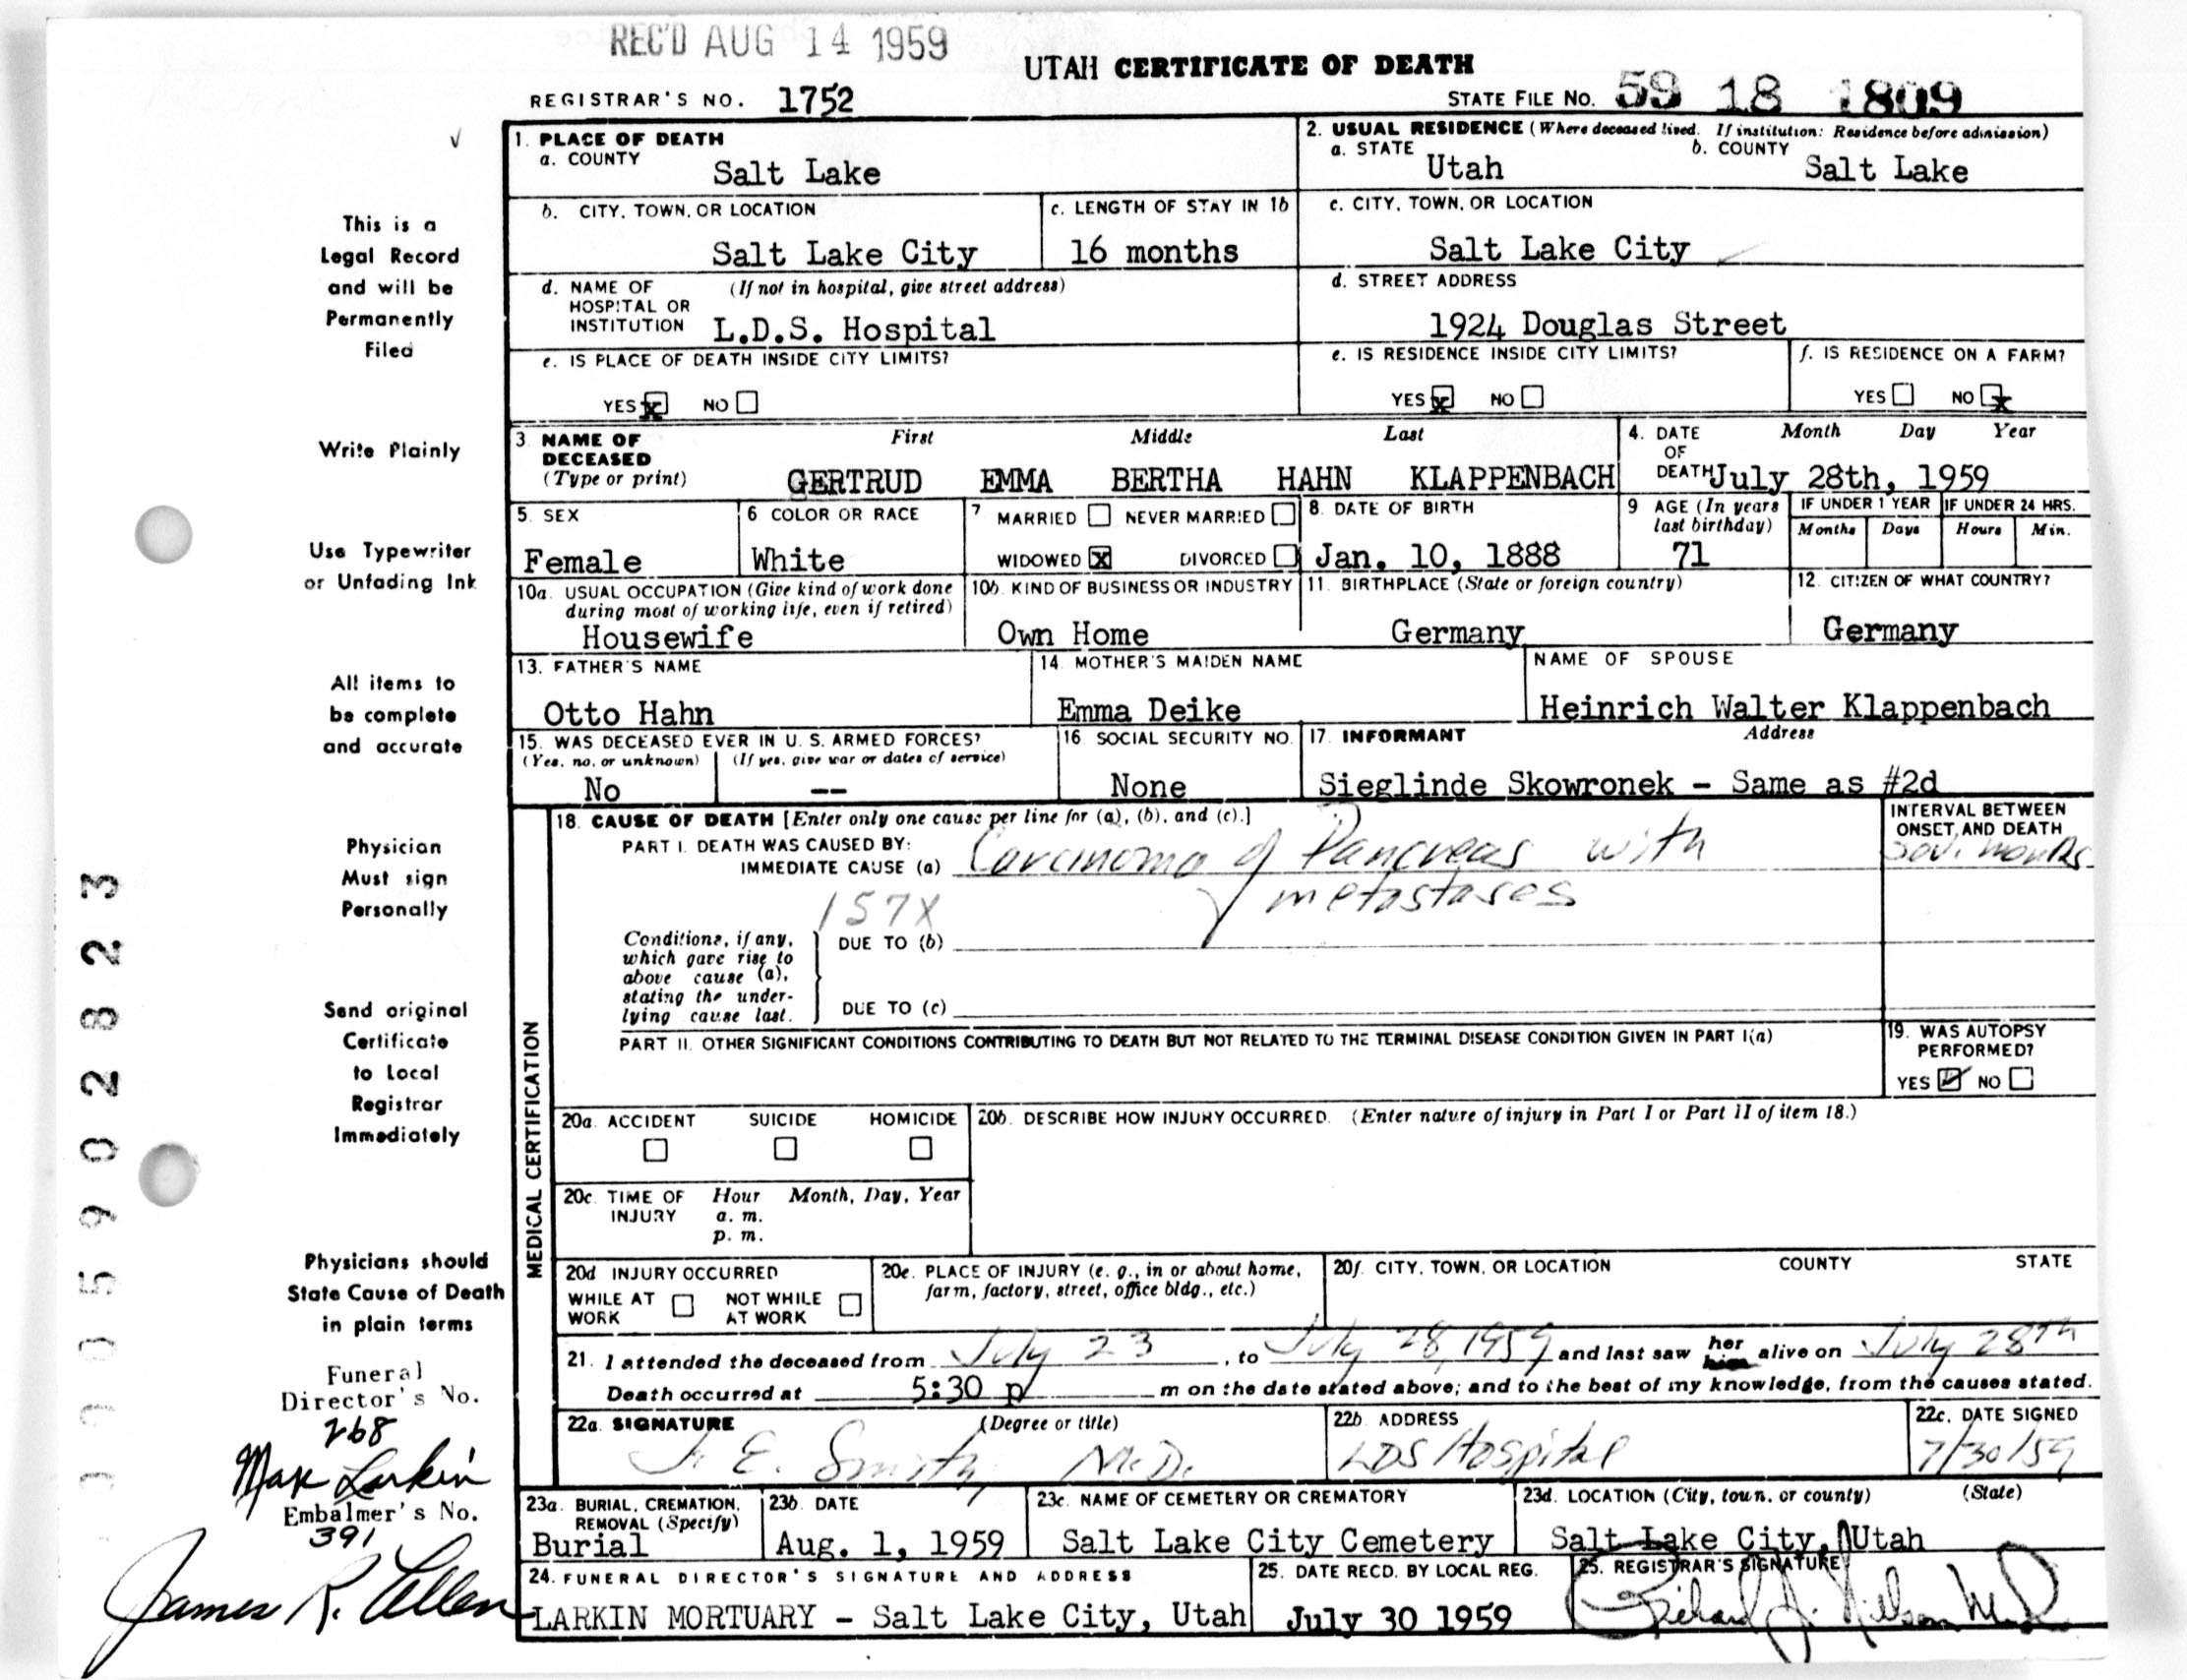 REC'D AUG 14 1959
UTAH CERTIFICATE OF DEATH
REGISTRAR'S NO. 1752
STATE FILE NO. 59 18 1809
1. PLACE OF DEATH
a. COUNTY
Salt Lake
2. USUAL RESIDENCE (Where deceased lived. If institution: Residence before admission)
a. STATE
Utah
b. COUNTY
Salt Lake
b. CITY, TOWN, OR LOCATION
Salt Lake City
c. LENGTH OF STAY IN 1b
16 months
c. CITY, TOWN, OR LOCATION
Salt Lake City
d. NAME OF (If not in hospital, give street address)
HOSPITAL OR
INSTITUTION L.D.S. Hospital
d. STREET ADDRESS
1924 Douglas Street
e. IS PLACE OF DEATH INSIDE CITY LIMITS?
YES x NO
e. IS RESIDENCE INSIDE CITY LIMITS?
YES x NO
f. IS RESIDENCE ON A FARM?
YES NO x
3 NAME OF DECEASED
(Type or print)
First Middle Last
GERTRUD EMMA BERTHA HAHN KLAPPENBACH
4. DATE OF DEATH
Month Day Year
July 28th, 1959
5. SEX
Female
6 COLOR OR RACE
White
7 MARRIED NEVER MARRIED
WIDOWED x DIVORCED
8. DATE OF BIRTH
Jan. 10, 1888
9 AGE (In years
last birthday)
71
IF UNDER 1 YEAR
Months Days
IF UNDER 24 HRS.
Hours Min.
10a. USUAL OCCUPATION (Give kind of work done
during most of working life, even if retired)
Housewife
10b. KIND OF BUSINESS OR INDUSTRY
Own Home
11. BIRTHPLACE (State or foreign country)
Germany
12. CITIZEN OF WHAT COUNTRY?
Germany
13. FATHER'S NAME
Otto Hahn
14 MOTHER'S MAIDEN NAME
Emma Deike
NAME OF SPOUSE
Heinrich Walter Klappenbach
15. WAS DECEASED EVER IN U. S. ARMED FORCES?
(Yes, no, or unknown) (If yes, give war or dates of service)
No --
16 SOCIAL SECURITY NO.
None
17. INFORMANT Address
Sieglinde Skowronek - Same as #2d
MEDICAL CERTIFICATION
18. CAUSE OF DEATH [Enter only one cause per line for (a), (b), and (c).]
PART I. DEATH WAS CAUSED BY:
IMMEDIATE CAUSE (a) Carcinoma of Pancreas with
metastases
157X
INTERVAL BETWEEN
ONSET AND DEATH
Sev. months
Conditions, if any,
which gave rise to
above cause (a),
stating the under-
lying cause last.
DUE TO (b)
DUE TO (c)
PART II. OTHER SIGNIFICANT CONDITIONS CONTRIBUTING TO DEATH BUT NOT RELATED TO THE TERMINAL DISEASE CONDITION GIVEN IN PART I(a)
19. WAS AUTOPSY
PERFORMED?
YES NO
20a. ACCIDENT SUICIDE HOMICIDE
20b. DESCRIBE HOW INJURY OCCURRED. (Enter nature of injury in Part I or Part II of item 18.)
20c. TIME OF INJURY
Hour Month, Day, Year
a. m.
p. m.
20d INJURY OCCURRED
WHILE AT WORK
NOT WHILE AT WORK
20e. PLACE OF INJURY (e. g., in or about home,
farm, factory, street, office bldg., etc.)
20f. CITY, TOWN, OR LOCATION COUNTY STATE
21. I attended the deceased from July 23, to July 28, 1959 and last saw her him alive on July 28th
Death occurred at 5:30 p m on the date stated above; and to the best of my knowledge, from the causes stated.
22a. SIGNATURE (Degree or title)
J. E. Smith M.D.
22b ADDRESS
LDS Hospital
22c. DATE SIGNED
7/30/59
23a. BURIAL, CREMATION,
REMOVAL (Specify)
Burial
23b DATE
Aug. 1, 1959
23c. NAME OF CEMETERY OR CREMATORY
Salt Lake City Cemetery
23d. LOCATION (City, town, or county) (State)
Salt Lake City, Utah
24. FUNERAL DIRECTOR'S SIGNATURE AND ADDRESS
LARKIN MORTUARY - Salt Lake City, Utah
25. DATE RECD. BY LOCAL REG.
July 30 1959
25. REGISTRAR'S SIGNATURE
Richard J. Nilson M.D.
This is a
Legal Record
and will be
Permanently
Filed
Write Plainly
Use Typewriter
or Unfading Ink
All items to
be complete
and accurate
Physician
Must sign
Personally
Send original
Certificate
to Local
Registrar
Immediately
Physicians should
State Cause of Death
in plain terms
Funeral
Director's No.
268
Max Larkin
Embalmer's No.
391
James R. Allen
0005902823